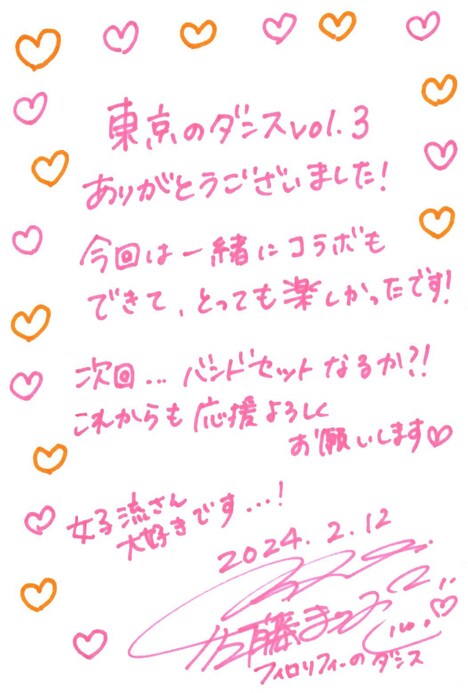 東京のダンスvol.3
ありがとうございました!
今回は一緒にコラボも
できて、とっても楽しかったです!
次回...バンドセットなるか?!
これからも応援よろしく
お願いします♡
女子流さん
大好きです...!
2024.2.12
佐藤まりあ
フィロソフィーのダンス